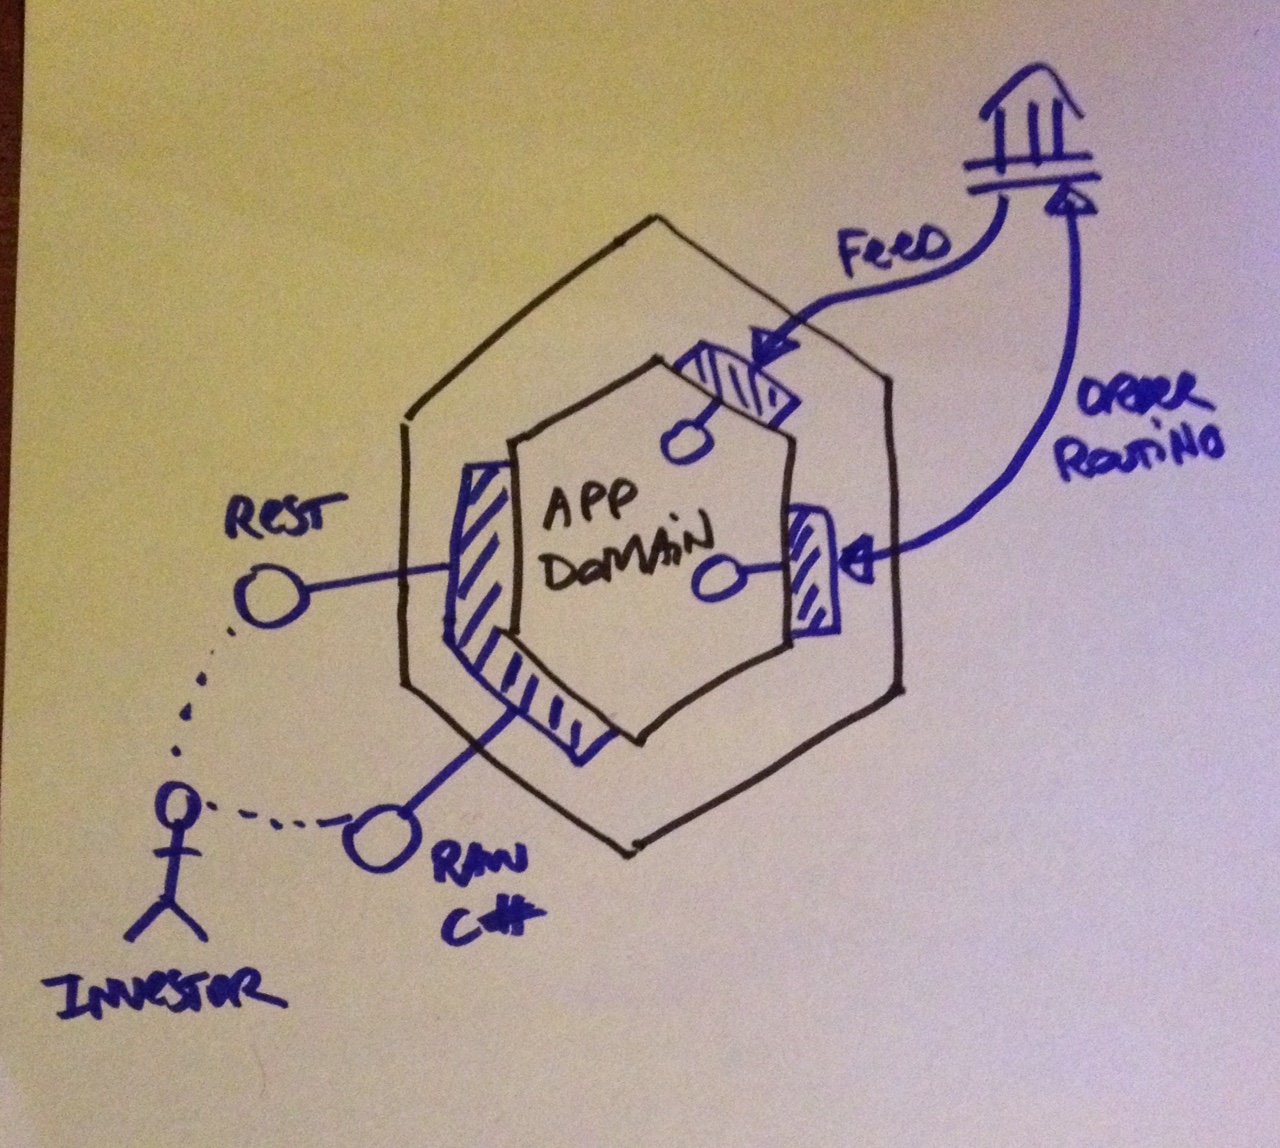 FEED
ORDER
ROUTING
REST
APP
DOMAIN
RAW
C#
INVESTOR